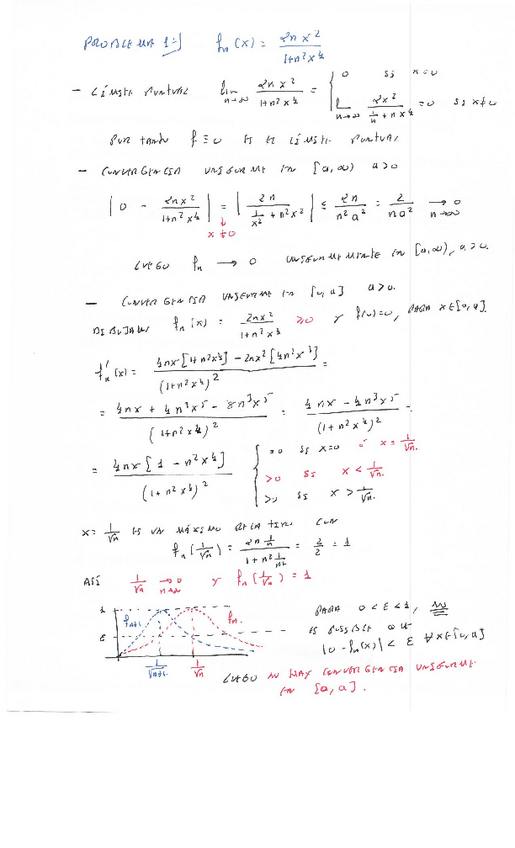 PROBLEMA 1:] fn(x) = 2nx² / 1+n²x⁴
- LÍMITE PUNTUAL lim n→∞ 2nx² / 1+n²x⁴ = { 0 si x=0
lim n→∞ 2x² / 1/n + nx⁴ = 0 si x≠0
POR TANTO f≡0 ES EL LÍMITE PUNTUAL
- CONVERGENCIA UNIFORME EN [a,∞) a>0
| 0 - 2nx² / 1+n²x⁴ | = | 2n / 1/x² + n²x² | ≤ 2n / n²a² = 2 / na² → 0 n→∞
x≠0
LUEGO fn → 0 UNIFORMEMENTE EN [a,∞), a>0.
- CONVERGENCIA UNIFORME EN [0,a] a>0.
DIBUJAMOS fn(x) = 2nx² / 1+n²x⁴ ≥0 Y f(0)=0, PARA x∈[0,a].
fn'(x) = 4nx[1+n²x⁴] - 2nx²[4n²x³] / (1+n²x⁴)² =
= 4nx + 4n³x⁵ - 8n³x⁵ / (1+n²x⁴)² = 4nx - 4n³x⁵ / (1+n²x⁴)² =
= 4nx[1 - n²x⁴] / (1+n²x⁴)² { =0 si x=0 ó x = 1/√n.
>0 si x < 1/√n.
>0 si x > 1/√n.
x = 1/√n ES UN MÁXIMO RELATIVO CON
fn(1/√n) = 2n 1/n / 1+n² 1/n² = 2/2 = 1
ASÍ 1/√n → 0 n→∞ Y fn(1/√n) = 1
1 fn+1 fn.
ε
1/√n+1 1/√n
PARA 0<ε<1, NO
ES POSIBLE QUE
|0 - fn(x)| < ε ∀x∈[0,a]
LUEGO NO HAY CONVERGENCIA UNIFORME
EN [0,a].